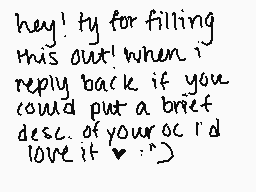 hey! ty for filling
this out! when i
reply back if you
could put a brief
desc. of your oc i'd
love it ♥ :")